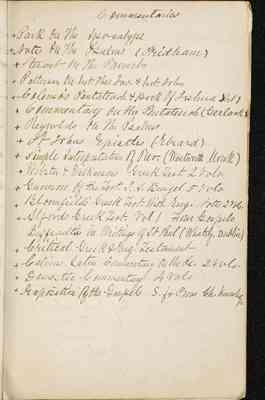 Commentaries
+ Park On The Apocalypse
+ Notes On The Psalms (Pridham)
+ Stuart On The Proverbs
+ Patterson On
+ Colenso Pentateuch & Book of Joshua
+ Commentary on the Pentateuch (Gerlach)
+ Reynolds On The Psalms
+ St Johns Epistles (Ebrard)
+ Simple Interpretation of Rev. (Wentworth
+ Webster & Wilkinson Greek Test 2 Vols
+ Gnomon of the Test. J. A. Bengel 5 Vols
+ Bloomfields Greek Test With Eng. Notes 2 Vols
+ Alfords Greek Test. Vol 1 Four Gospels
Difficulties in Writings of St Paul (Whately, Dublin)
+ Critical Greek & Eng. Testament
+ Calvins Latin Commentary 24 vols.
+ Domestic Commentary 4 Vols
+ Exposition Of the Gospels S. for Prom. Chr. Knowledge